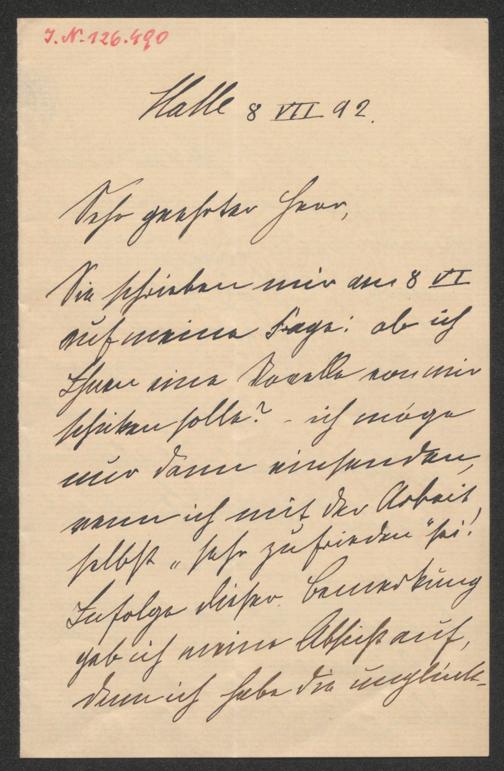 J. N. 126.490
Halle 8 VII 92.
Sehr geehrter Herr,
Sie schrieben mir am 8 VI
auf meine Frage: ob ich
Ihnen eine Novelle von mir
schicken solle? – ich möge
nur dann einsenden,
wenn ich mit der Arbeit
selbst „sehr zufrieden“ sei!
Infolge dieser Bemerkung
gab ich meine Absicht auf,
denn ich habe die unglück-